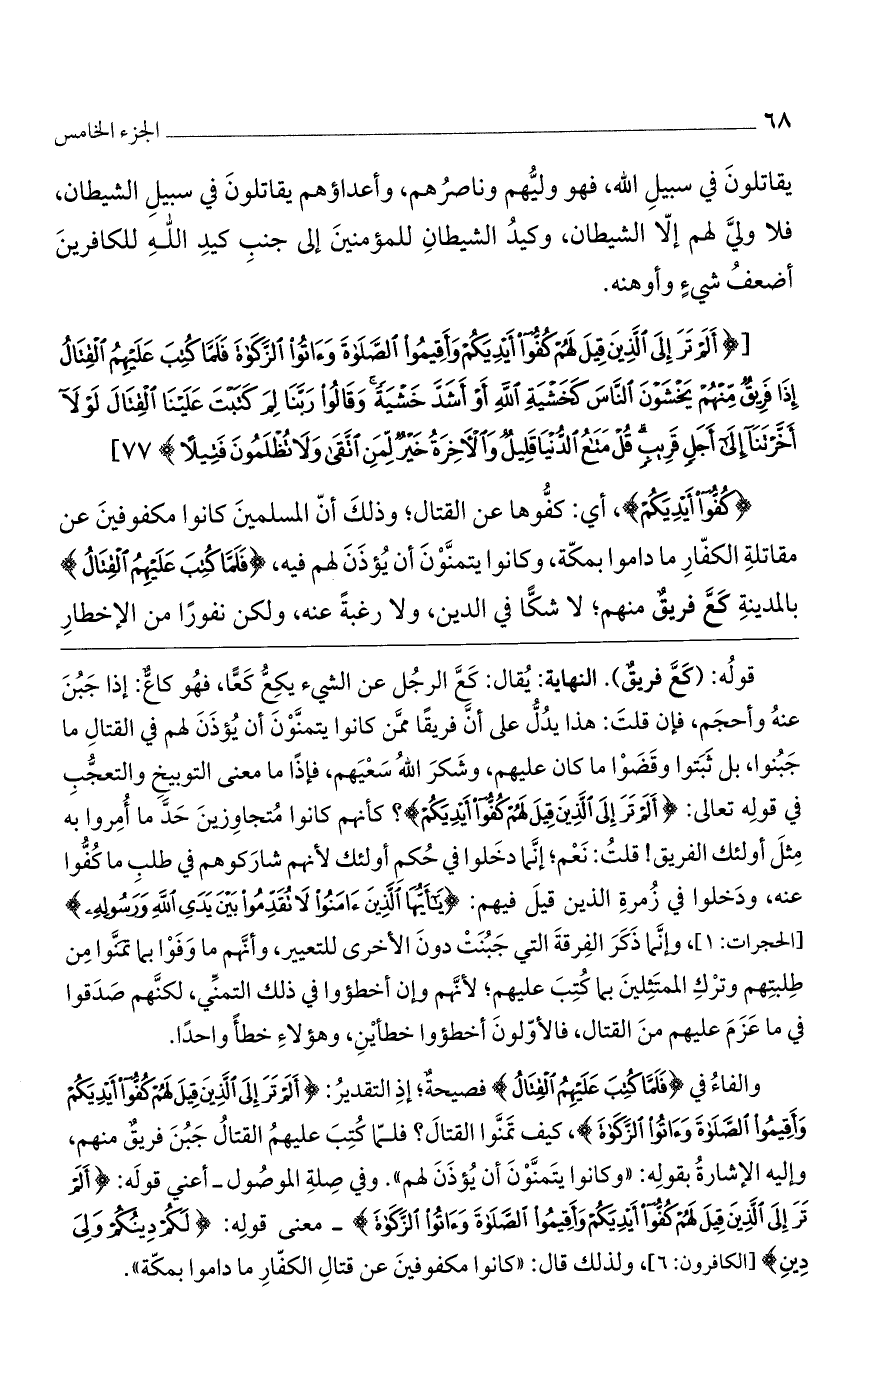 ٦٨ ــــــــــــــــــــ الجزء الخامس
يقاتلونَ في سبيلِ الله، فهو وليُّهم وناصرُهم، وأعداؤهم يقاتلونَ في سبيلِ الشيطان،
فلا وليَّ لهم إلّا الشيطان، وكيدُ الشيطانِ للمؤمنينَ إلى جنبِ كيدِ اللـهِ للكافرينَ
أضعفُ شيءٍ وأوهنه.
[﴿أَلَمْ تَرَ إِلَى ٱلَّذِينَ قِيلَ لَهُمْ كُفُّوٓا۟ أَيْدِيَكُمْ وَأَقِيمُوا۟ ٱلصَّلَوٰةَ وَءَاتُوا۟ ٱلزَّكَوٰةَ فَلَمَّا كُتِبَ عَلَيْهِمُ ٱلْقِتَالُ
إِذَا فَرِيقٌ مِّنْهُمْ يَخْشَوْنَ ٱلنَّاسَ كَخَشْيَةِ ٱللَّهِ أَوْ أَشَدَّ خَشْيَةً ۚ وَقَالُوا۟ رَبَّنَا لِمَ كَتَبْتَ عَلَيْنَا ٱلْقِتَالَ لَوْلَآ
أَخَّرْتَنَآ إِلَىٰٓ أَجَلٍ قَرِيبٍ ۗ قُلْ مَتَٰعُ ٱلدُّنْيَا قَلِيلٌ وَٱلْآخِرَةُ خَيْرٌ لِّمَنِ ٱتَّقَىٰ وَلَا تُظْلَمُونَ فَتِيلًا﴾ ٧٧]
﴿كُفُّوٓا۟ أَيْدِيَكُمْ﴾، أي: كفُّوها عن القتال؛ وذلكَ أنّ المسلمينَ كانوا مكفوفينَ عن
مقاتلةِ الكفّارِ ما داموا بمكّة، وكانوا يتمنَّوْنَ أن يُؤذَنَ لهم فيه، ﴿فَلَمَّا كُتِبَ عَلَيْهِمُ ٱلْقِتَالُ﴾
بالمدينةِ كَعَّ فريقٌ منهم؛ لا شكًّا في الدين، ولا رغبةً عنه، ولكن نفورًا من الإخطارِ
قولُه: (كَعَّ فريقٌ). النهاية: يُقال: كَعَّ الرجُل عن الشيء يكِعُّ كَعًّا، فهُو كاعٌّ: إذا جَبُنَ
عنهُ وأحجَم، فإن قلتَ: هذا يدُلُّ على أنَّ فريقًا ممَّن كانوا يتمنَّوْنَ أن يُؤذَنَ لهم في القتالِ ما
جَبُنوا، بل ثَبَتوا وقَضَوْا ما كان عليهم، وشكرَ اللهُ سَعْيَهم، فإذًا ما معنى التوبيخِ والتعجُّبِ
في قولِه تعالى: ﴿أَلَمْ تَرَ إِلَى ٱلَّذِينَ قِيلَ لَهُمْ كُفُّوٓا۟ أَيْدِيَكُمْ﴾؟ كأنهم كانوا مُتجاوِزينَ حَدَّ ما أُمِروا به
مِثلَ أولئك الفريق! قلتُ: نَعْم؛ إنَّما دخَلوا في حُكمِ أولئك لأنهم شارَكوهم في طلبِ ما كُفُّوا
عنه، ودَخلوا في زُمرةِ الذين قيلَ فيهم: ﴿يَٰٓأَيُّهَا ٱلَّذِينَ ءَامَنُوا۟ لَا تُقَدِّمُوا۟ بَيْنَ يَدَىِ ٱللَّهِ وَرَسُولِهِۦ﴾
[الحجرات: ١]، وإنَّما ذَكَرَ الفِرقةَ التي جَبُنَتْ دونَ الأخرى للتعيير، وأنَّهم ما وَفَوْا بما تمَنَّوا مِن
طِلبتِهم وترْكِ الممتَثِلينَ بما كُتِبَ عليهم؛ لأنَّهم وإن أخطؤوا في ذلك التمنِّي، لكنَّهم صَدَقوا
في ما عَزَمَ عليهم منَ القتال، فالأوّلونَ أخطؤوا خطأيْنِ، وهؤلاءِ خطأً واحدًا.
والفاءُ في ﴿فَلَمَّا كُتِبَ عَلَيْهِمُ ٱلْقِتَالُ﴾ فصيحةٌ؛ إذِ التقديرُ: ﴿أَلَمْ تَرَ إِلَى ٱلَّذِينَ قِيلَ لَهُمْ كُفُّوٓا۟ أَيْدِيَكُمْ
وَأَقِيمُوا۟ ٱلصَّلَوٰةَ وَءَاتُوا۟ ٱلزَّكَوٰةَ﴾، كيف تمَنَّوا القتالَ؟ فلـمّا كُتِبَ عليهمُ القتالُ جَبُنَ فريقٌ منهم،
وإليه الإشارةُ بقولِه: «وكانوا يتمنَّوْنَ أن يُؤذَنَ لهم». وفي صِلةِ الموصُول ـ أعني قولَه: ﴿أَلَمْ
تَرَ إِلَى ٱلَّذِينَ قِيلَ لَهُمْ كُفُّوٓا۟ أَيْدِيَكُمْ وَأَقِيمُوا۟ ٱلصَّلَوٰةَ وَءَاتُوا۟ ٱلزَّكَوٰةَ﴾ ـ معنى قولِه: ﴿لَكُمْ دِينُكُمْ وَلِىَ
دِينِ﴾ [الكافرون: ٦]، ولذلك قال: «كانوا مكفوفينَ عن قتالِ الكفّارِ ما داموا بمكّة».